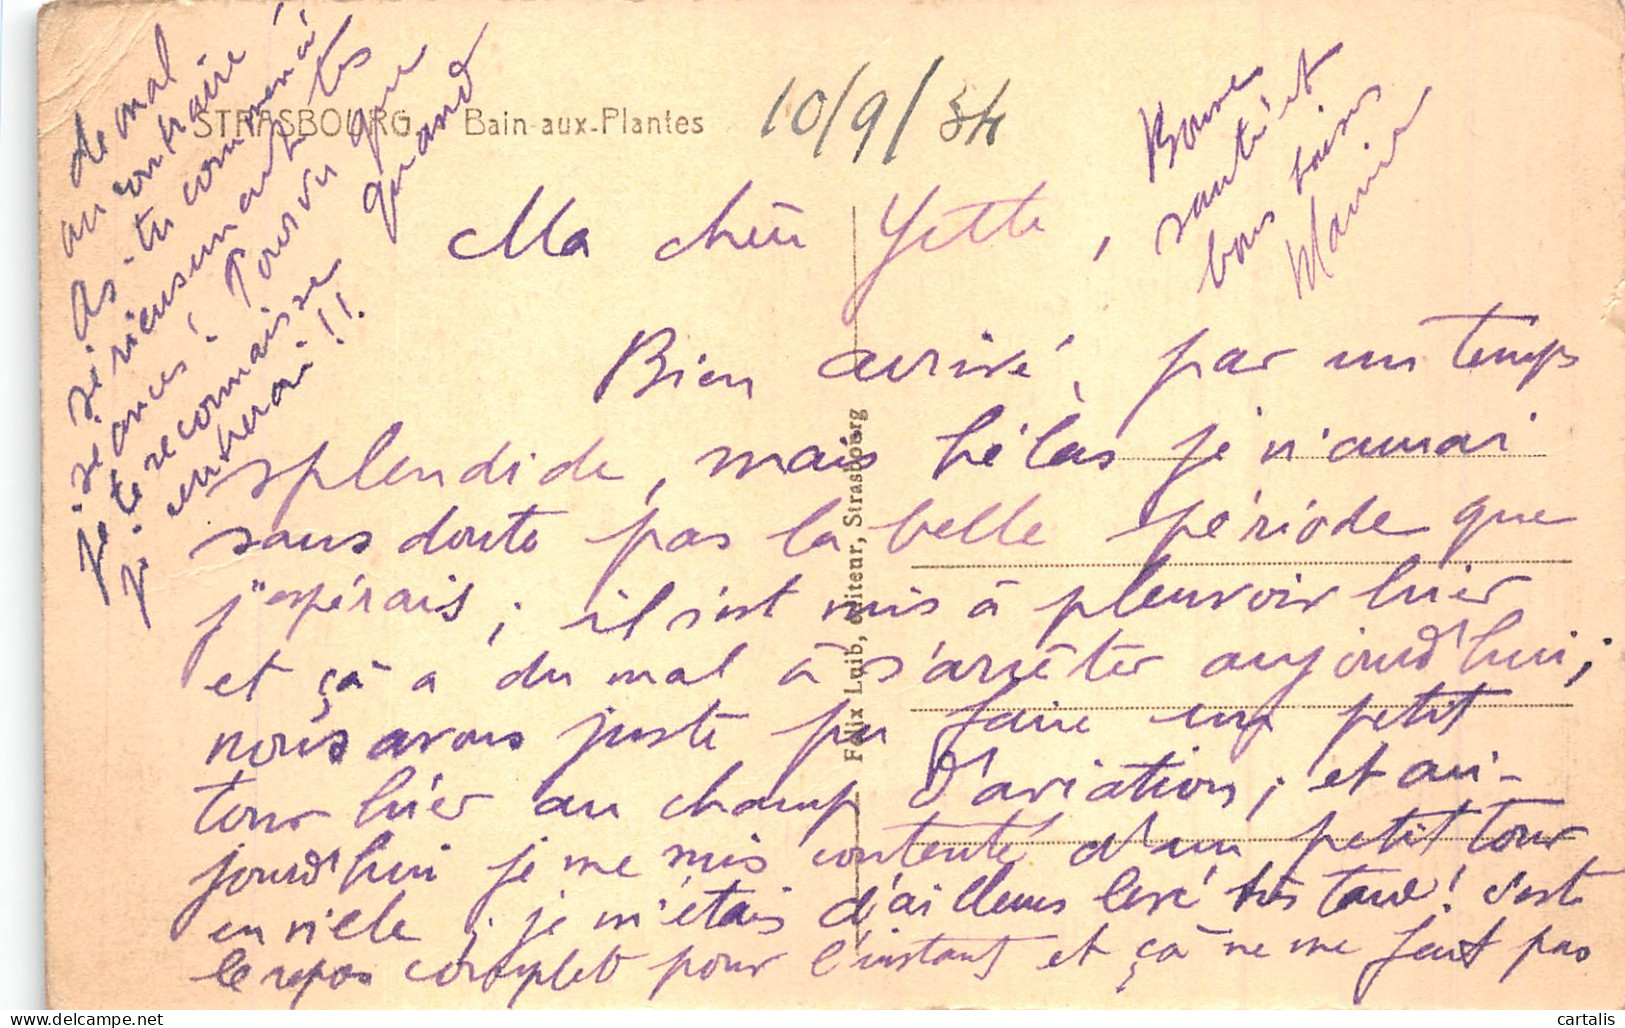 STRASBOURG. Bain-aux-Plantes
10/9/34
Ma chère Yette,
Bien arrivé, par un temps
splendide, mais hélas je n'aurai
sans doute pas la belle période que
j'espérais ; il s'est mis à pleuvoir hier
et çà a du mal à s'arrêter aujourd'hui ;
nous avons juste pu faire un petit
tour hier au champ d'aviation ; et au-
jourd'hui je me suis contenté d'un petit tour
en ville ; je m'étais d'ailleurs levé très tard ! c'est
le repos complet pour l'instant et çà ne me fait pas
de mal
au contraire
As-tu commencé
sérieusement tes
séances ! Pourvu que
je te reconnaisse quand
je rentrerai !!
Bonne
santé et
bons baisers
Félix Luib, éditeur, Strasbourg
cartalis